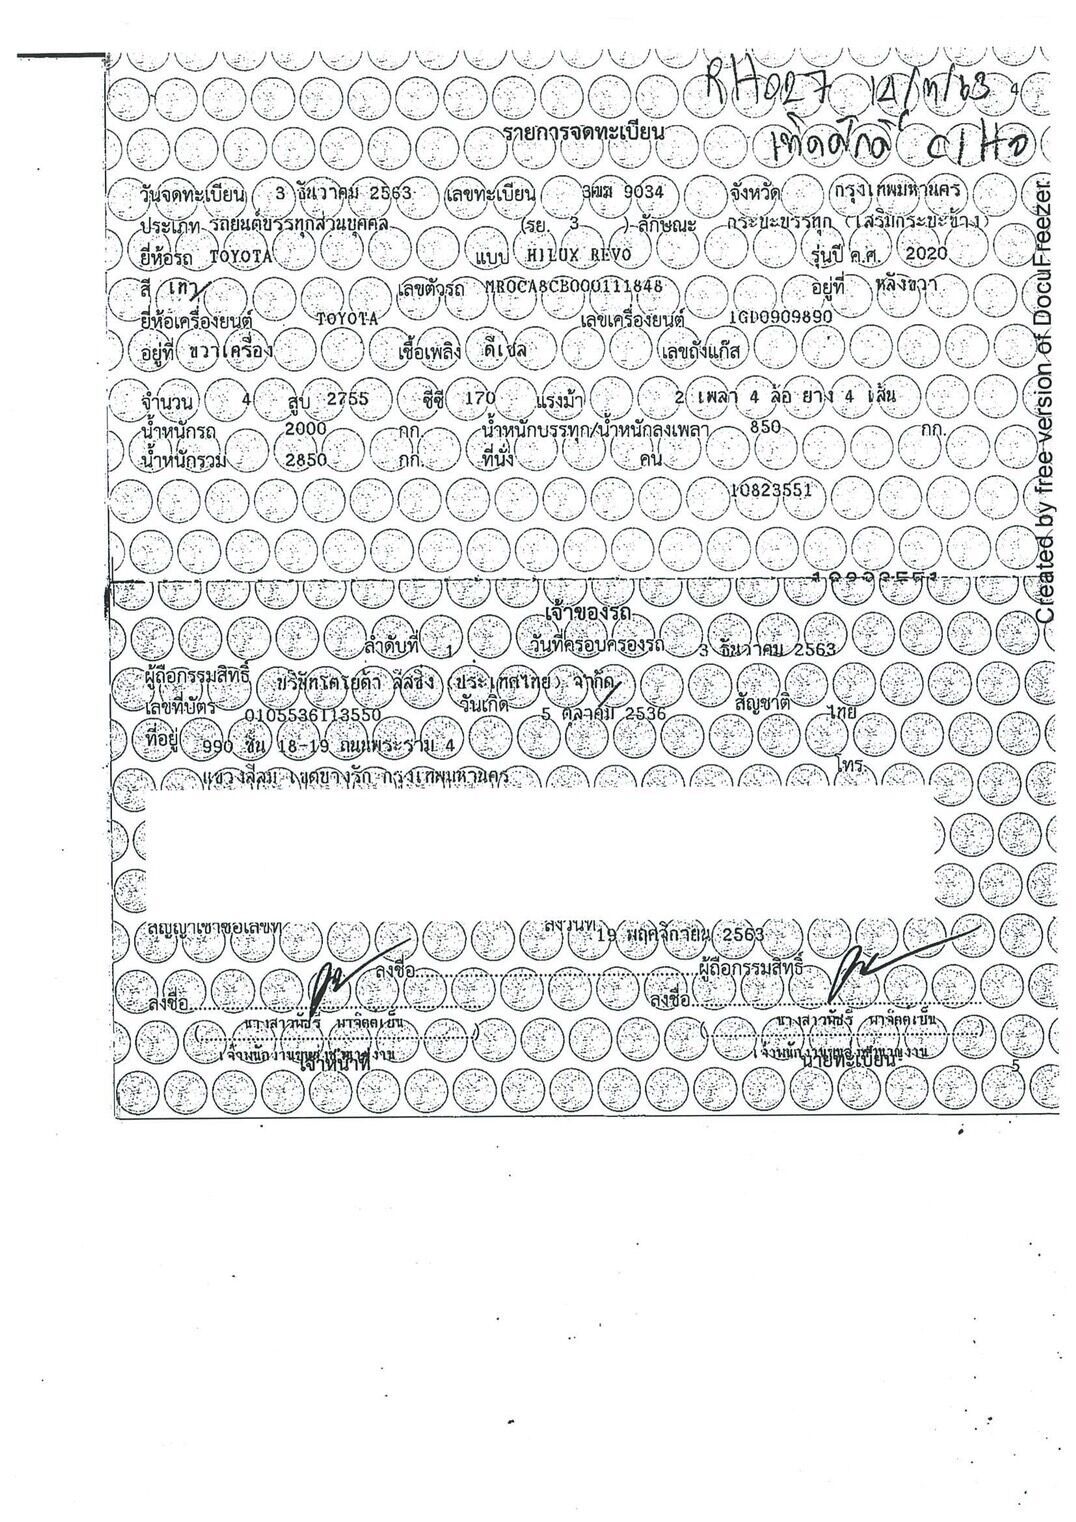 RH027 12/11/63 4
รายการจดทะเบียน
วันจดทะเบียน 3 ธันวาคม 2563 เลขทะเบียน 3ฒฆ 9034 จังหวัด กรุงเทพมหานคร
ประเภท รถยนต์บรรทุกส่วนบุคคล (รย. 3 ) ลักษณะ กระบะบรรทุก (เสริมกระบะข้าง)
ยี่ห้อรถ TOYOTA แบบ HILUX REVO รุ่นปี ค.ศ. 2020
สี เทา เลขตัวรถ MR0CA8CB000111848 อยู่ที่ หลังขวา
ยี่ห้อเครื่องยนต์ TOYOTA เลขเครื่องยนต์ 1GD0909890
อยู่ที่ ขวาเครื่อง เชื้อเพลิง ดีเซล เลขถังแก๊ส
จำนวน 4 สูบ 2755 ซีซี 170 แรงม้า 2 เพลา 4 ล้อ ยาง 4 เส้น
น้ำหนักรถ 2000 กก. น้ำหนักบรรทุก/น้ำหนักลงเพลา 850 กก.
น้ำหนักรวม 2850 กก. ที่นั่ง คน
10823551
เจ้าของรถ
ลำดับที่ 1 วันที่ครอบครองรถ 3 ธันวาคม 2563
ผู้ถือกรรมสิทธิ์ บริษัทโตโยต้า ลีสซิ่ง (ประเทศไทย) จำกัด
เลขที่บัตร 0105536113550 วันเกิด 5 ตุลาคม 2536 สัญชาติ ไทย
ที่อยู่ 990 ชั้น 18-19 ถนนพระราม 4
แขวงสีลม เขตบางรัก กรุงเทพมหานคร โทร.
สัญญาเช่าซื้อเลขที่ ลงวันที่ 19 พฤศจิกายน 2563
ลงชื่อ ผู้ถือกรรมสิทธิ์
ลงชื่อ ลงชื่อ
นางสาวพัชรี นางสาวพัชรี
เจ้าหน้าที่ นายทะเบียน
5
Created by free version of DocuFreezer